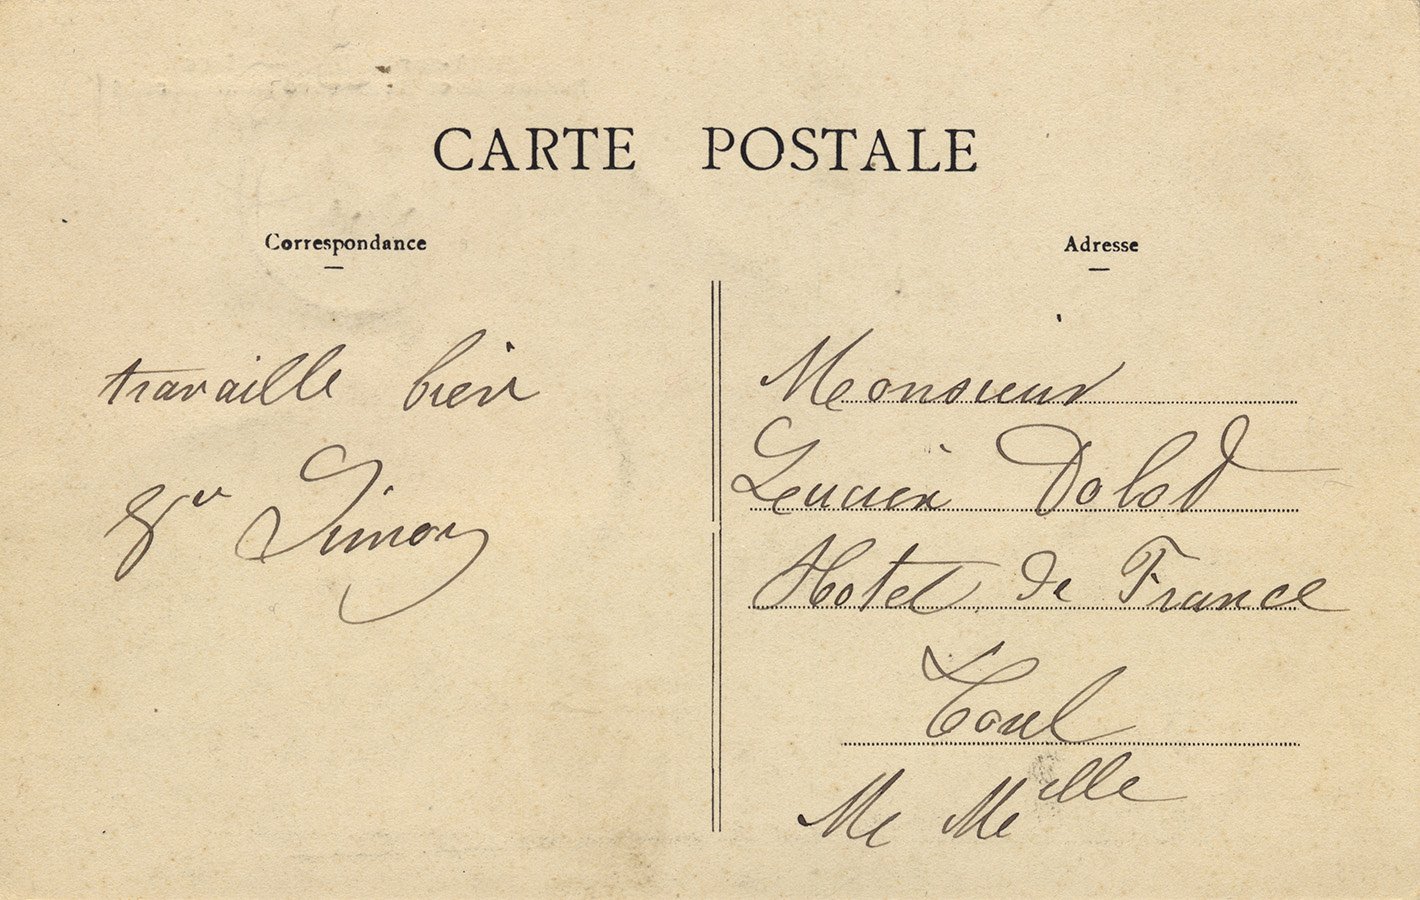 CARTE POSTALE
Correspondance
travaille bien
Simon
Adresse
Monsieur
Lucien Dolot
Hotel de France
Toul
Me Melle